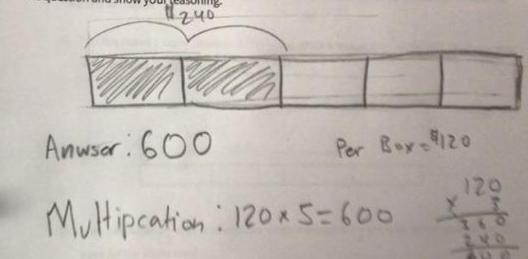 question and show your reasoning.
$240
Anwser: 600
Per Box = $120
Multipcation: 120 x 5 = 600
120
x
360
240